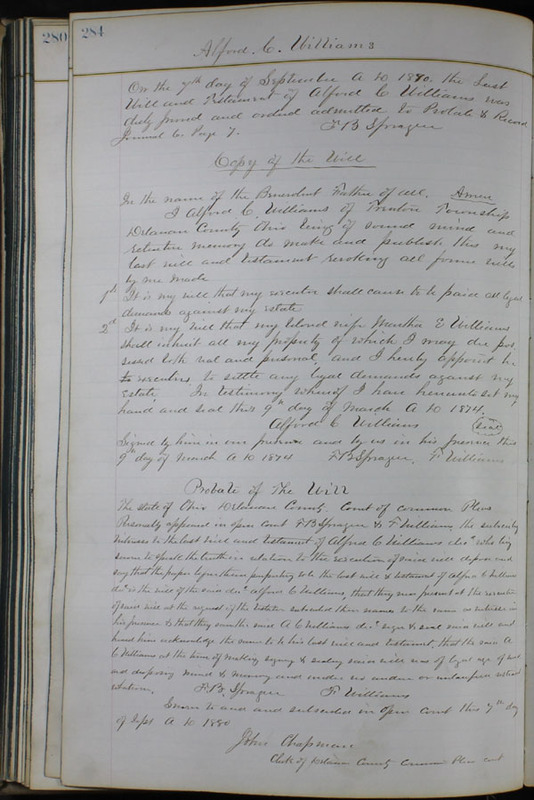 280 284
Alford C. Williams
On the 7th day of September A D 1880. the Last
Will and Testament of Alford C Williams was
duly proved and ordered admitted to Probate & Record
Journal 6. Page 7. F B Sprague
Copy of the Will
In the name of the Benevolent Father of all. Amen
I Alford C. Williams of Trenton Township
Delaware County Ohio being of sound mind and
retentive memory do make and publish this my
last will and testament revoking all former wills
by me made
1st It is my will that my executor shall cause to be paid all legal
demands against my estate
2d It is my will that my beloved wife Martha E Williams
shall inherit all my property of which I may die pos
sessed both real and personal, and I hereby appoint her
executrix to settle any legal demands against my
estate. In testimony whereof I have hereunto set my
hand and seal this 9th day of March A D 1874.
Alford C Williams (Seal)
Signed by him in our presence and by us in his presence this
9th day of March A D 1874 F B Sprague. F Williams
Probate of The Will
The State of Ohio Delaware County. Court of Common Pleas
Personally appeared in open court F B Sprague & F Williams, the subscribing
witnesses to the last will and testament of Alford C Williams decd who being
sworn to speak the truth in relation to the execution of said will depose and
say that the paper before them purporting to be the last will & testament of Alford C Williams
decd is the will of the said decd Alford C Williams, that they were present at the execution
of said will at the request of the testator subscribed their names to the same as witnesses in
his presence & that they saw the said A C Williams decd sign & seal said will and
heard him acknowledge the same to be his last will and testament, that the said A
C Williams at the time of making signing & sealing said will was of legal age of sound
and disposing mind & memory and under no undue or unlawful restraint
whatsoever. F B Sprague F Williams
Sworn to and subscribed in open court this 7th day
of Sept A D 1880
John Chapman
Clerk of Delaware County Common Pleas Court